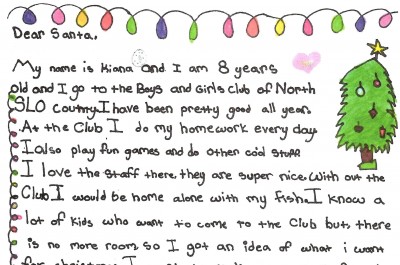 Dear Santa,
My name is Kiana and I am 8 years
old and I go to the Boys and Girls club of North
SLO country I have been pretty good all year.
At the Club I do my homework every day
I also play fun games and do other cool stuff
I love the staff there they are super nice. With out the
Club I would be home alone with my fish. I know a
lot of kids who want to come to the Club but there
is no more room so I got an idea of what i want
for christmas I